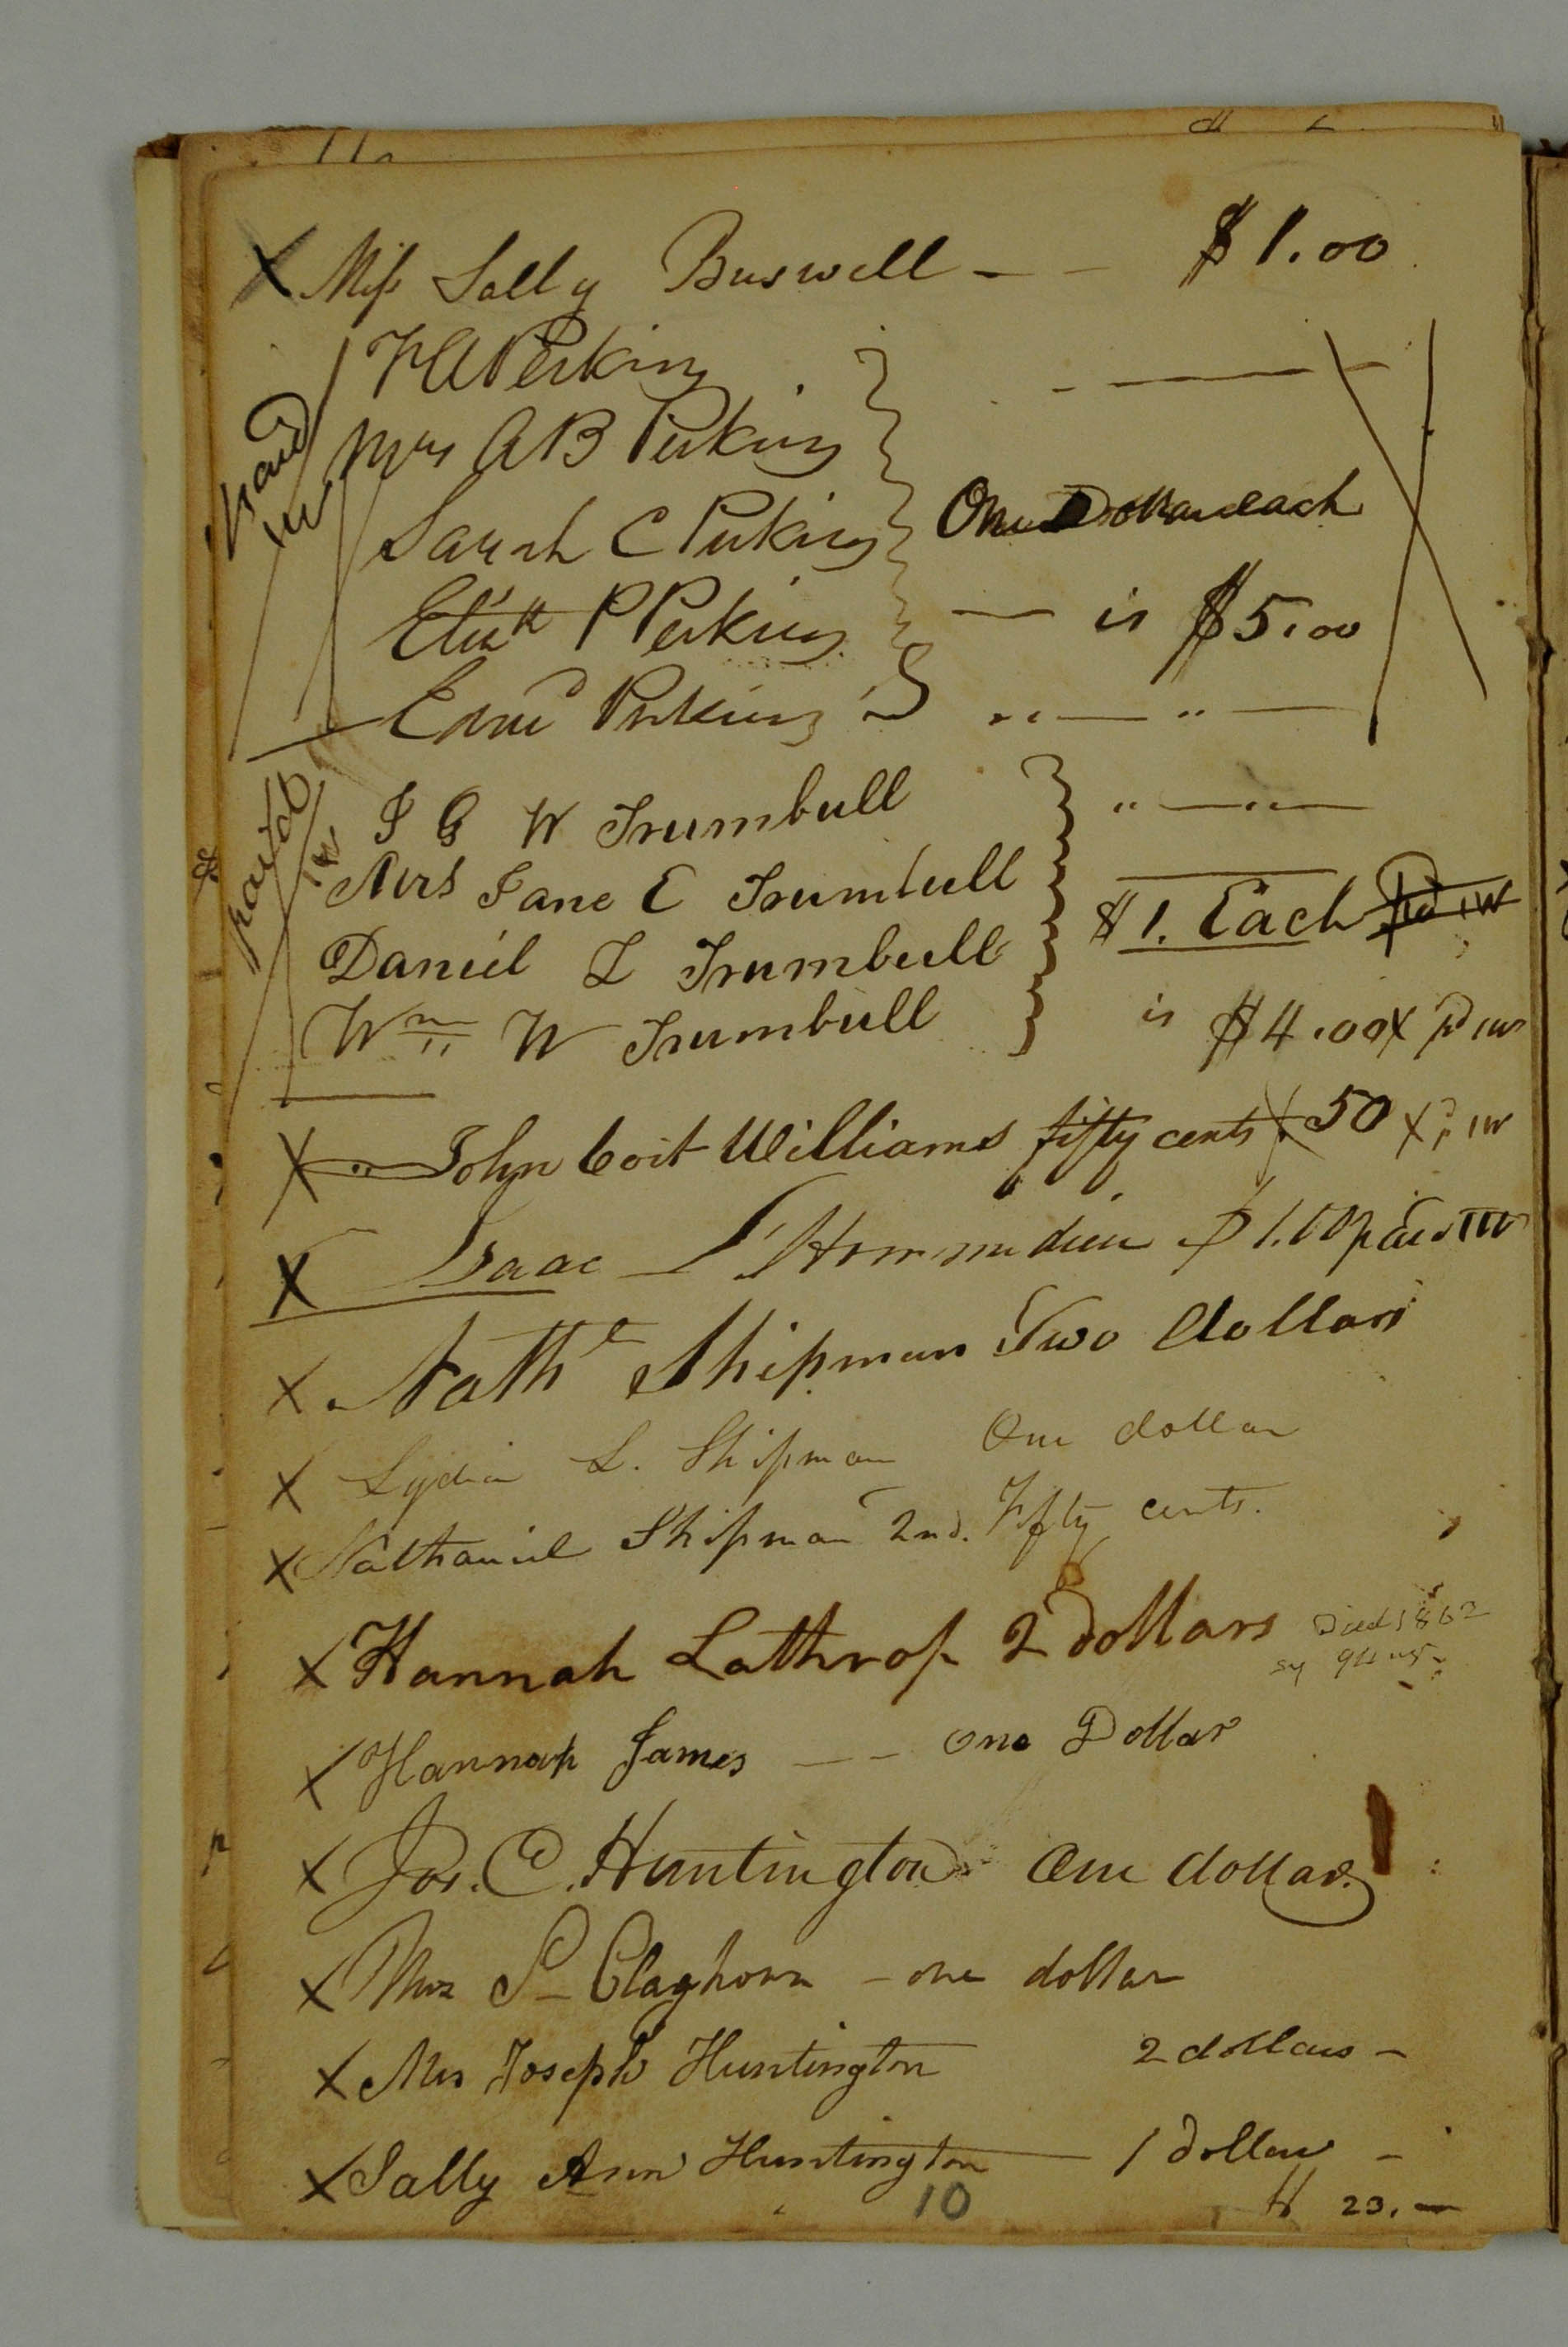 X Miss Sally Buswell - - $1.00
F A Perkins
Mrs A B Perkins
paid
Sarah C Perkins One Dollar each
Elizth P Perkins — is $5.00
Edmd Perkins
J G W Trumbull
paid
Mrs Jane E Trumbull
$1. Each
Daniel L Trumbull
Wm W Trumbull is $4.00 X
X John Coit Williams fifty cents 50 X
X Isaac L'Hommedieu $1.00 paid
X Nathl Shipman Two dollars
X Lydia L. Shipman One dollar
X Nathaniel Shipman 2nd. Fifty cents.
X Hannah Lathrop 2 dollars Died 1862
X Hannah James -- One Dollar
X Jos. C. Huntington One dollar.
X Mrs S - Claghorn - one dollar
X Mrs Joseph Huntington 2 dollars -
X Sally Ann Huntington — 1 dollar -
10 $ 23. -